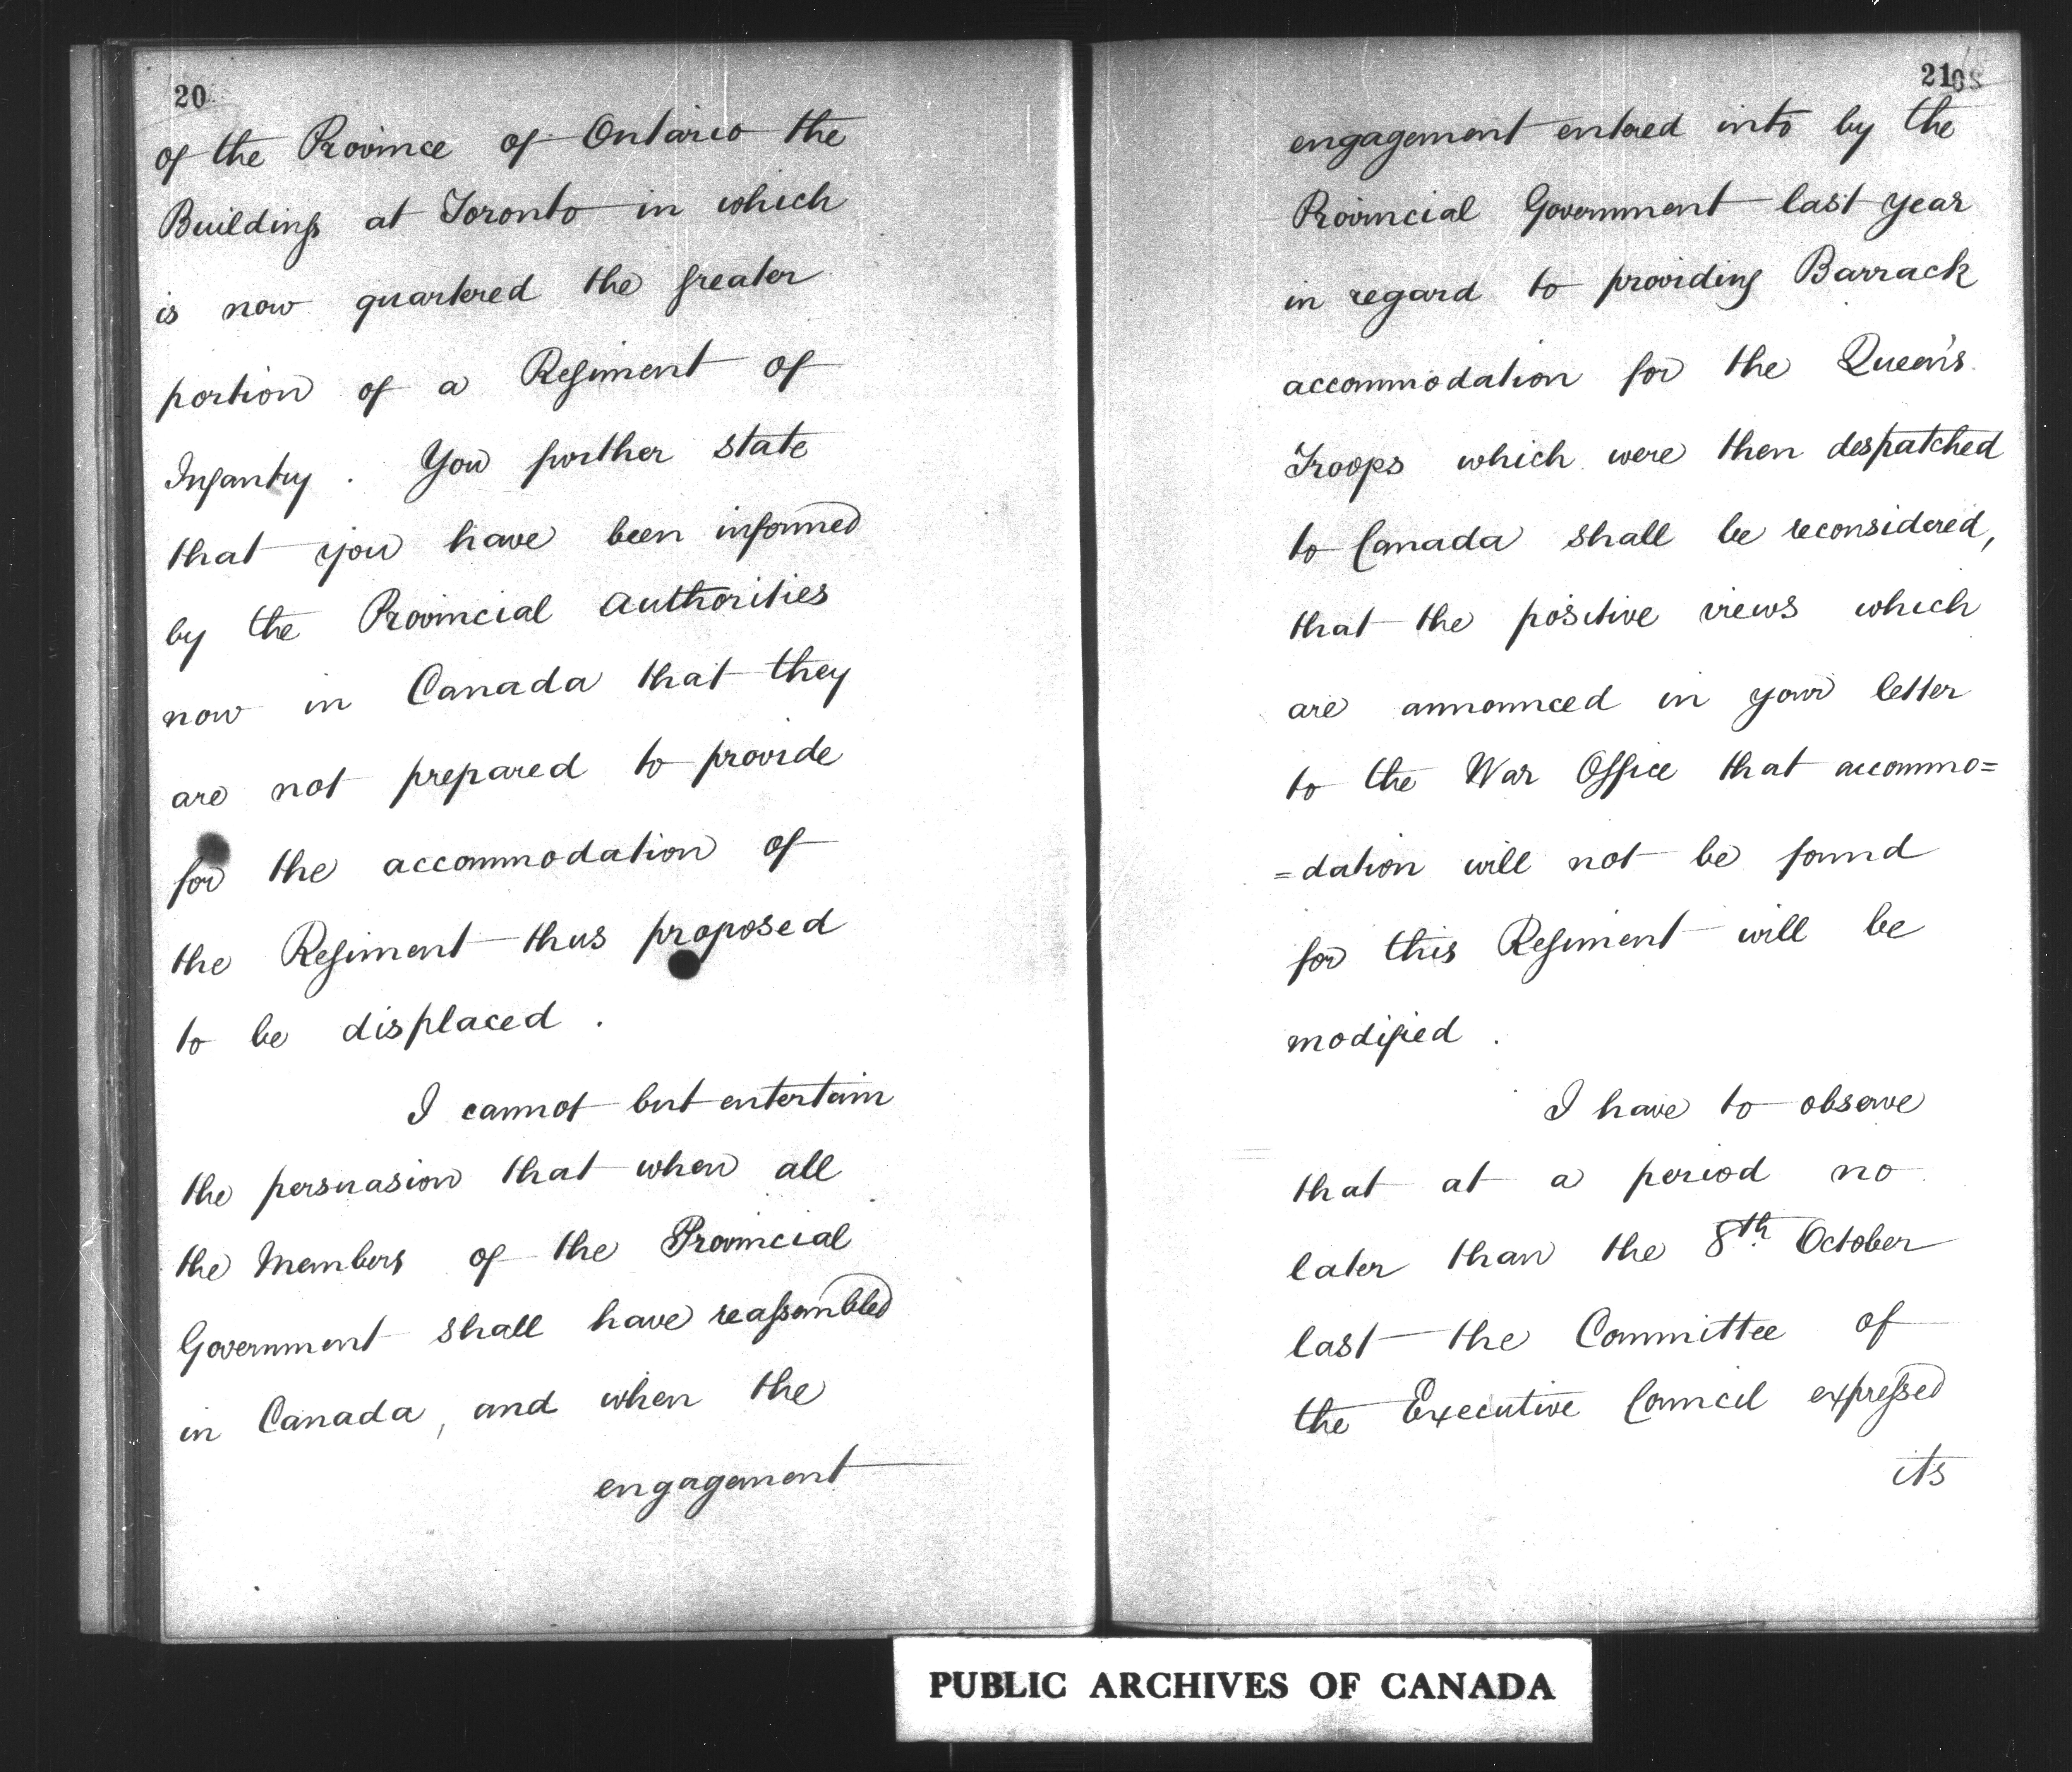 20
of the Province of Ontario the
Buildings at Toronto in which
is now quartered the greater
portion of a Regiment of
Infantry. You further state
that you have been informed
by the Provincial Authorities
now in Canada that they
are not prepared to provide
for the accommodation of
the Regiment thus proposed
to be displaced.
I cannot but entertain
the persuasion that when all
the Members of the Provincial
Government shall have reassembled
in Canada, and when the
engagement
21
engagement entered into by the
Provincial Government last year
in regard to providing Barrack
accommodation for the Queen's
Troops which were then despatched
to Canada shall be reconsidered,
that the positive views which
are announced in your letter
to the War Office that accommo=
=dation will not be found
for this Regiment will be
modified.
I have to observe
that at a period no
later than the 8th October
last the Committee of
the Executive Council expressed
its
PUBLIC ARCHIVES OF CANADA